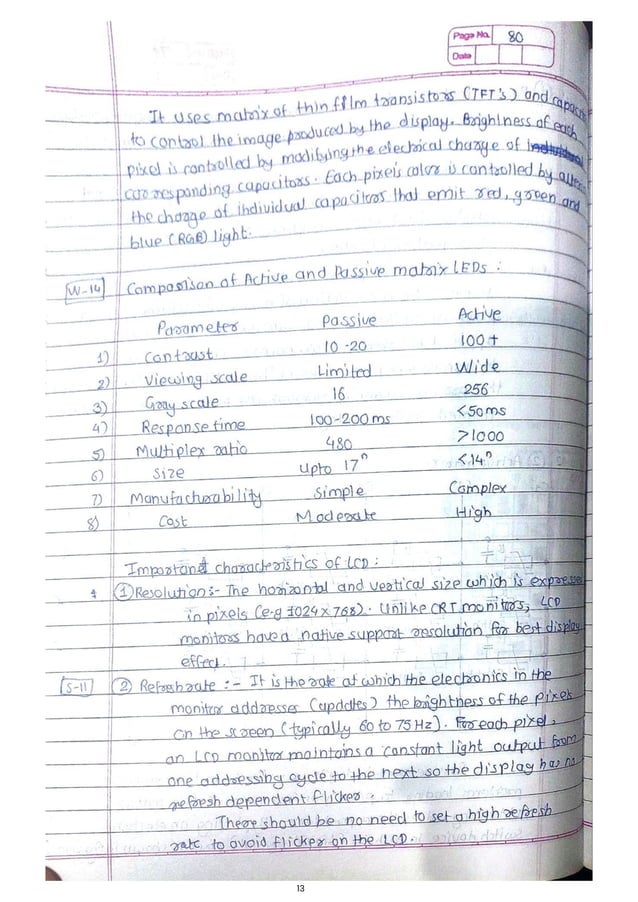 Page No. 80
Date
It uses matrix of thin film transistors (TFT's) and
to control the image produced by the display. Brightness of each
pixel is controlled by modifying the electrical charge of individual
corresponding capacitors. Each pixel's color is controlled by
the charge of individual capacitors that emit red, green and
blue (RGB) light.
W-14 Comparison of Active and Passive matrix LEDs :
Parameter Passive Active
1) Contrast 10-20 100+
2) Viewing scale Limited Wide
3) Gray scale 16 256
4) Response time 100-200 ms <50ms
5) Multiplex ratio 480 >1000
6) Size Upto 17" <14"
7) Manufacturability Simple Complex
8) Cost Moderate High
Important characteristics of LCD :
1 ① Resolution :- The horizontal and vertical size which is
in pixels (e.g 1024 x 768). Unlike CRT monitors, LCD
monitors have a native support resolution for best display
effect.
S-11 ② Refresh rate :- It is the rate at which the electronics in the
monitor addresses (updates) the brightness of the pixels
on the screen (typically 60 to 75 Hz). For each pixel,
an LCD monitor maintains a constant light output from
one addressing cycle to the next so the display has no
refresh dependent flicker.
There should be no need to set a high refresh
rate to avoid flicker on the LCD.
13